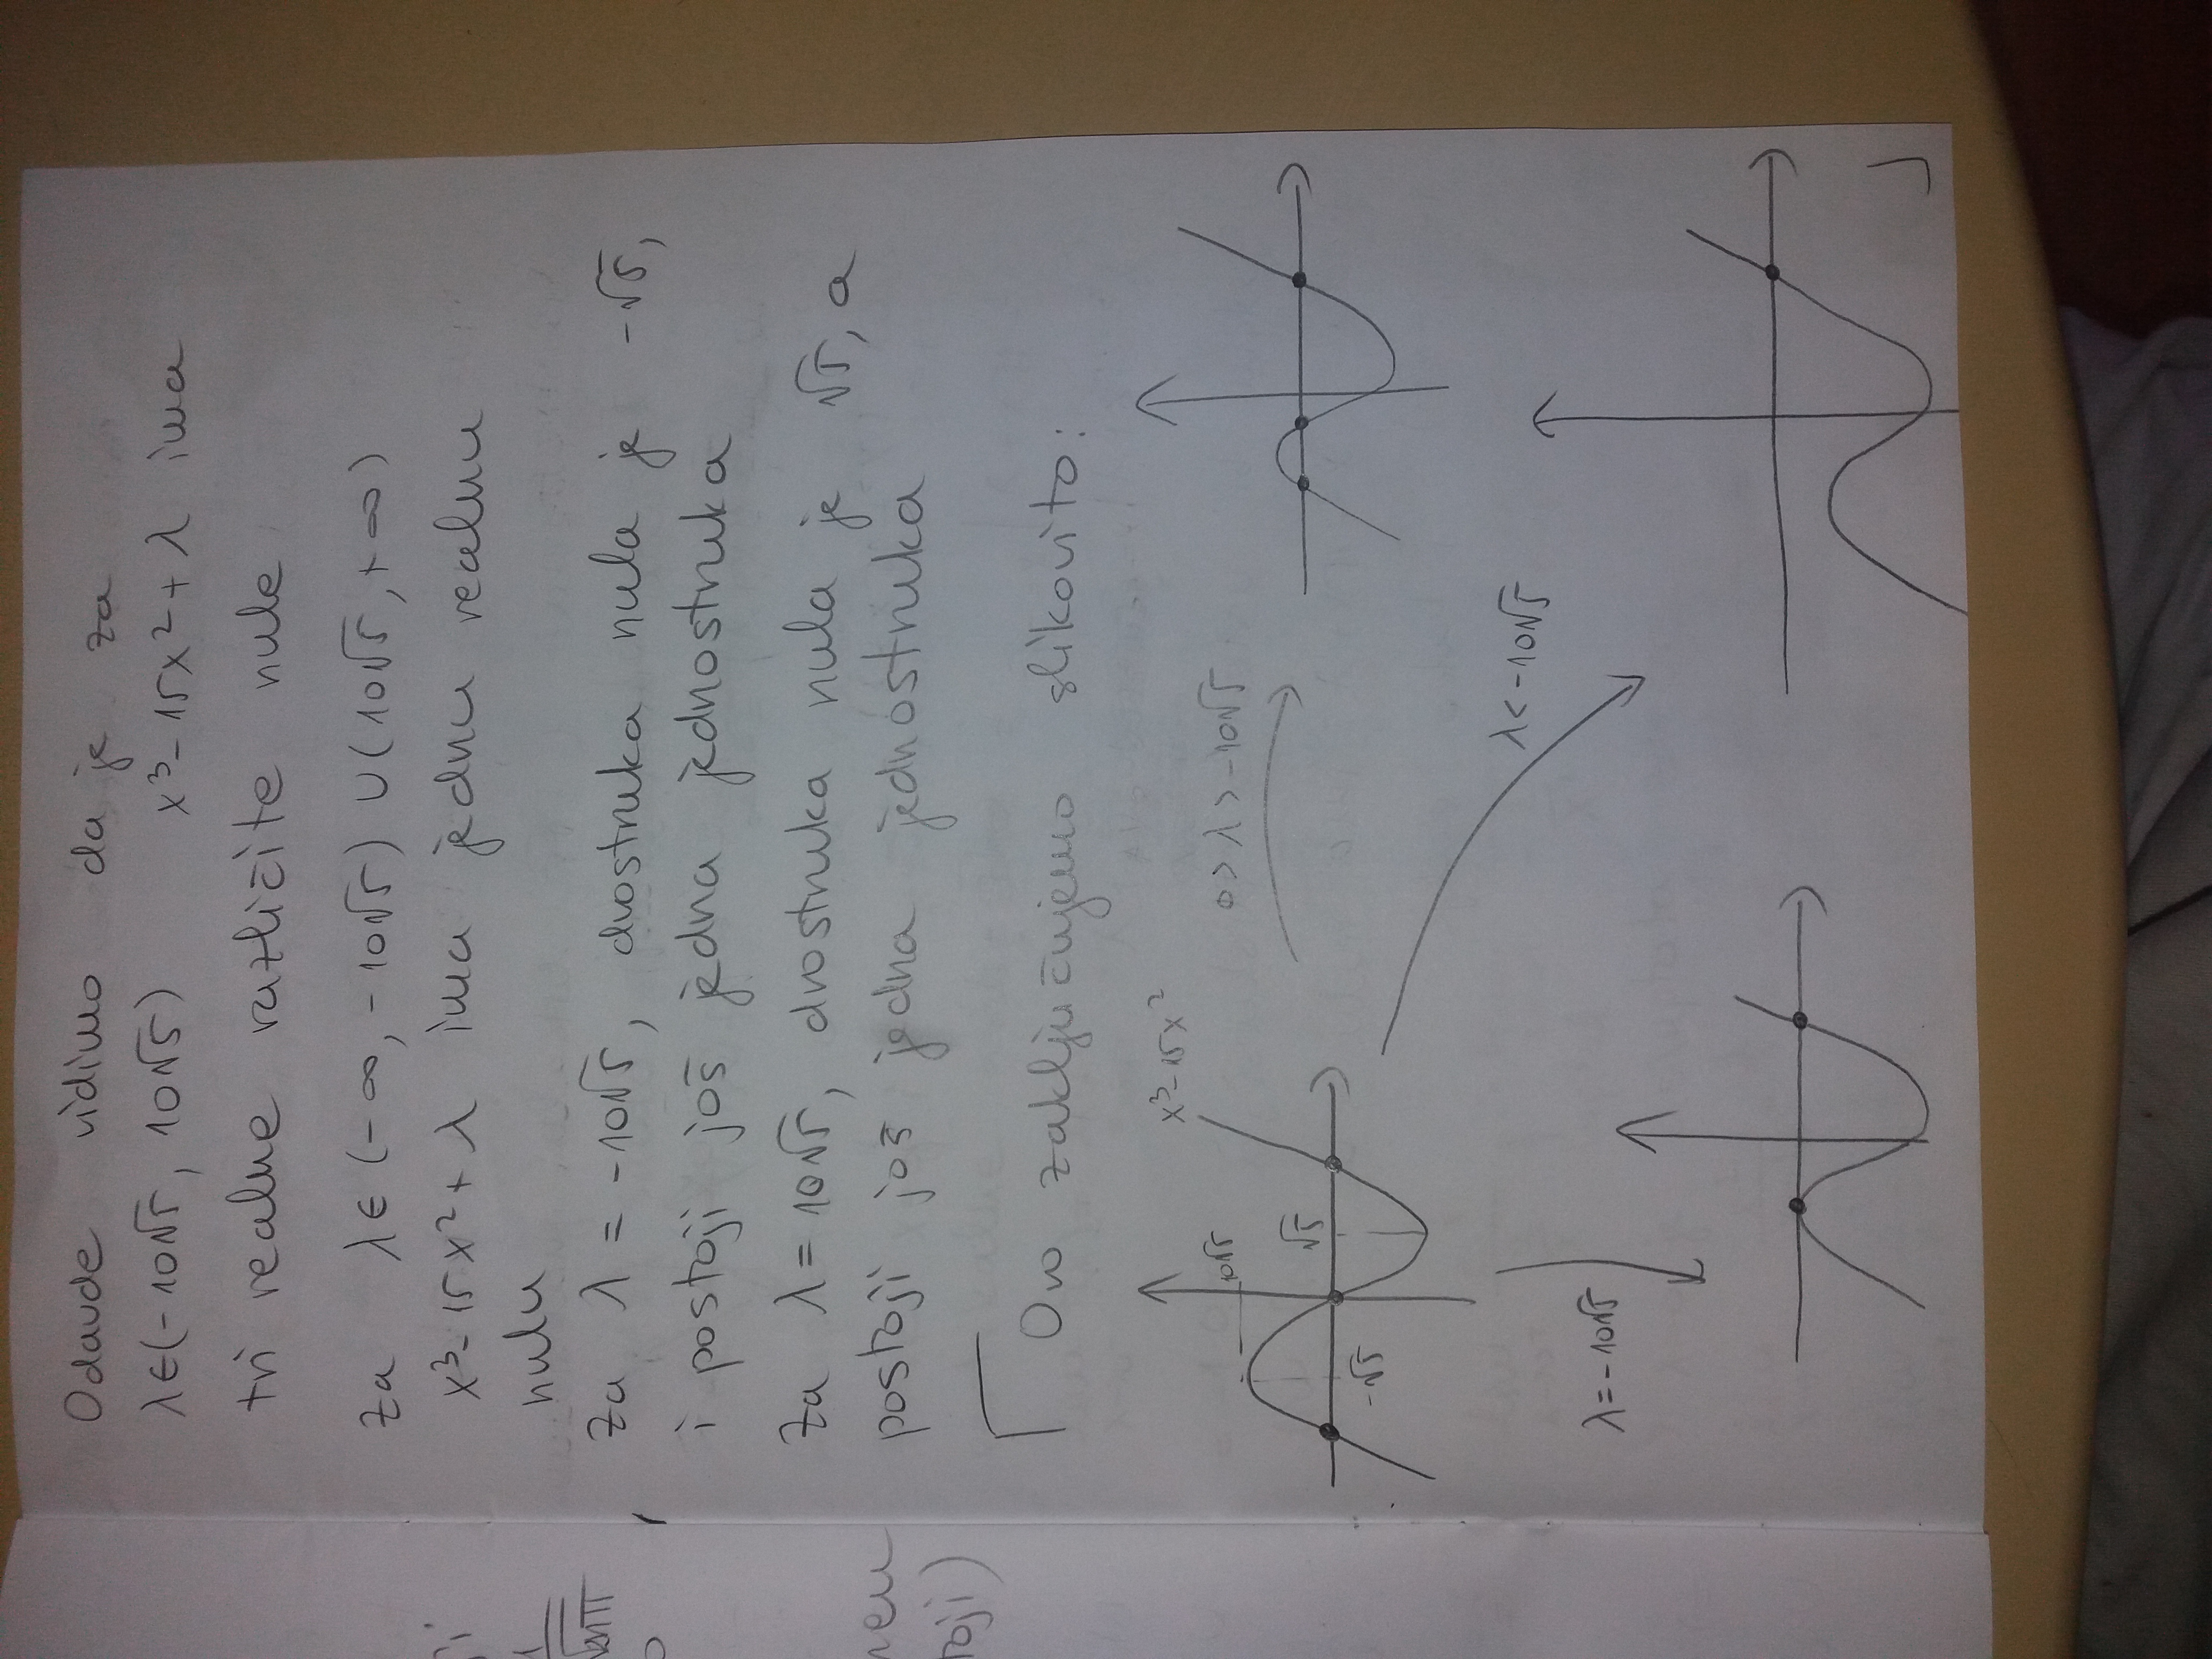 Odavde vidimo da je za
λ∈(-10√5, 10√5) x³-15x²+λ ima
tri realne različite nule
za λ∈(-∞,-10√5)∪(10√5,+∞)
x³-15x²+λ ima jednu realnu
nulu
Za λ = -10√5, dvostruka nula je -√5,
i postoji još jedna jednostruka
Za λ = 10√5, dvostruka nula je √5, a
postoji još jedna jednostruka
Ovo zaključujemo slikovito:
x³-15x²
10√5
0>λ>-10√5
√5
-√5
λ<-10√5
λ=-10√5
toji)